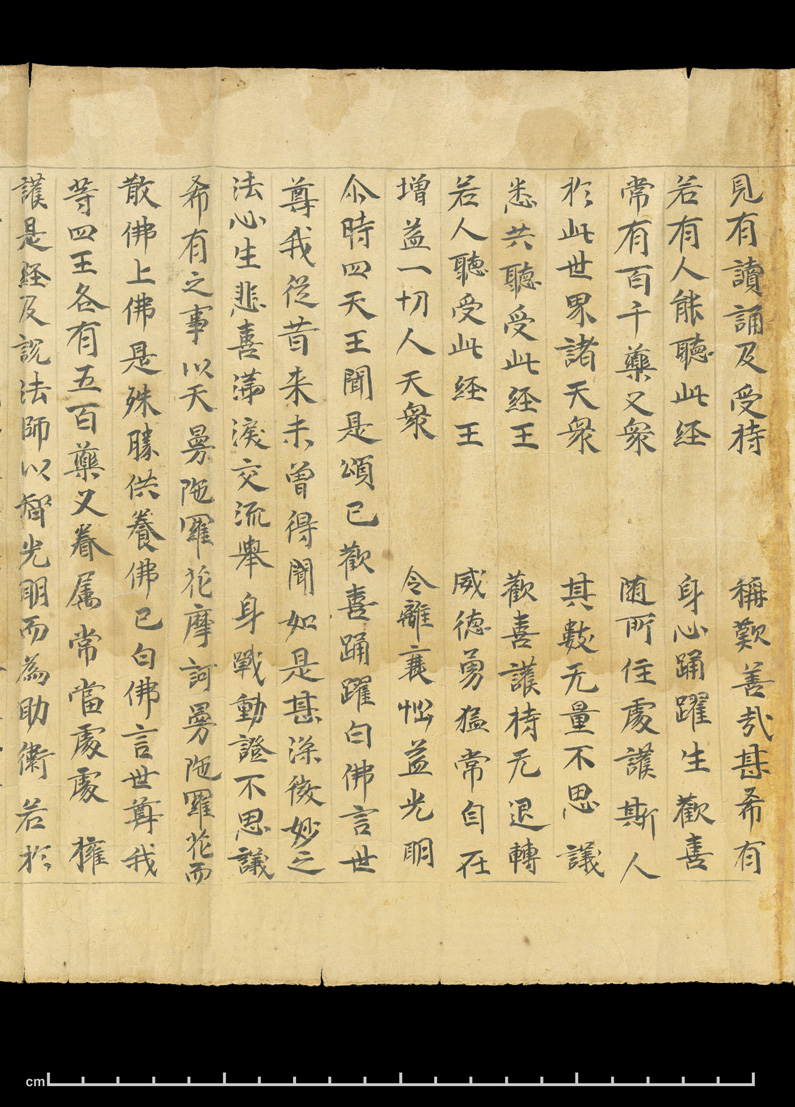 見有讀誦及受持　稱歎善哉甚希有
若有人能聽此経　身心踊躍生歡喜
常有百千藥叉衆　随所住處護斯人
於此世界諸天衆　其數无量不思議
悉共聽受此経王　歡喜護持无退轉
若人聽受此経王　威德勇猛常自在
增益一切人天衆　令離衰惱益光明
尒時四天王聞是頌已歡喜踊躍白佛言世
尊我從昔来未曾得聞如是甚深微妙之
法心生悲喜涕淚交流舉身戰動證不思議
希有之事以天曼陁羅花摩訶曼陁羅花而
散佛上佛是殊勝供養佛已白佛言世尊我
等四王各有五百藥叉眷属常當處處擁
護是経及說法師以智光明而為助衛若於